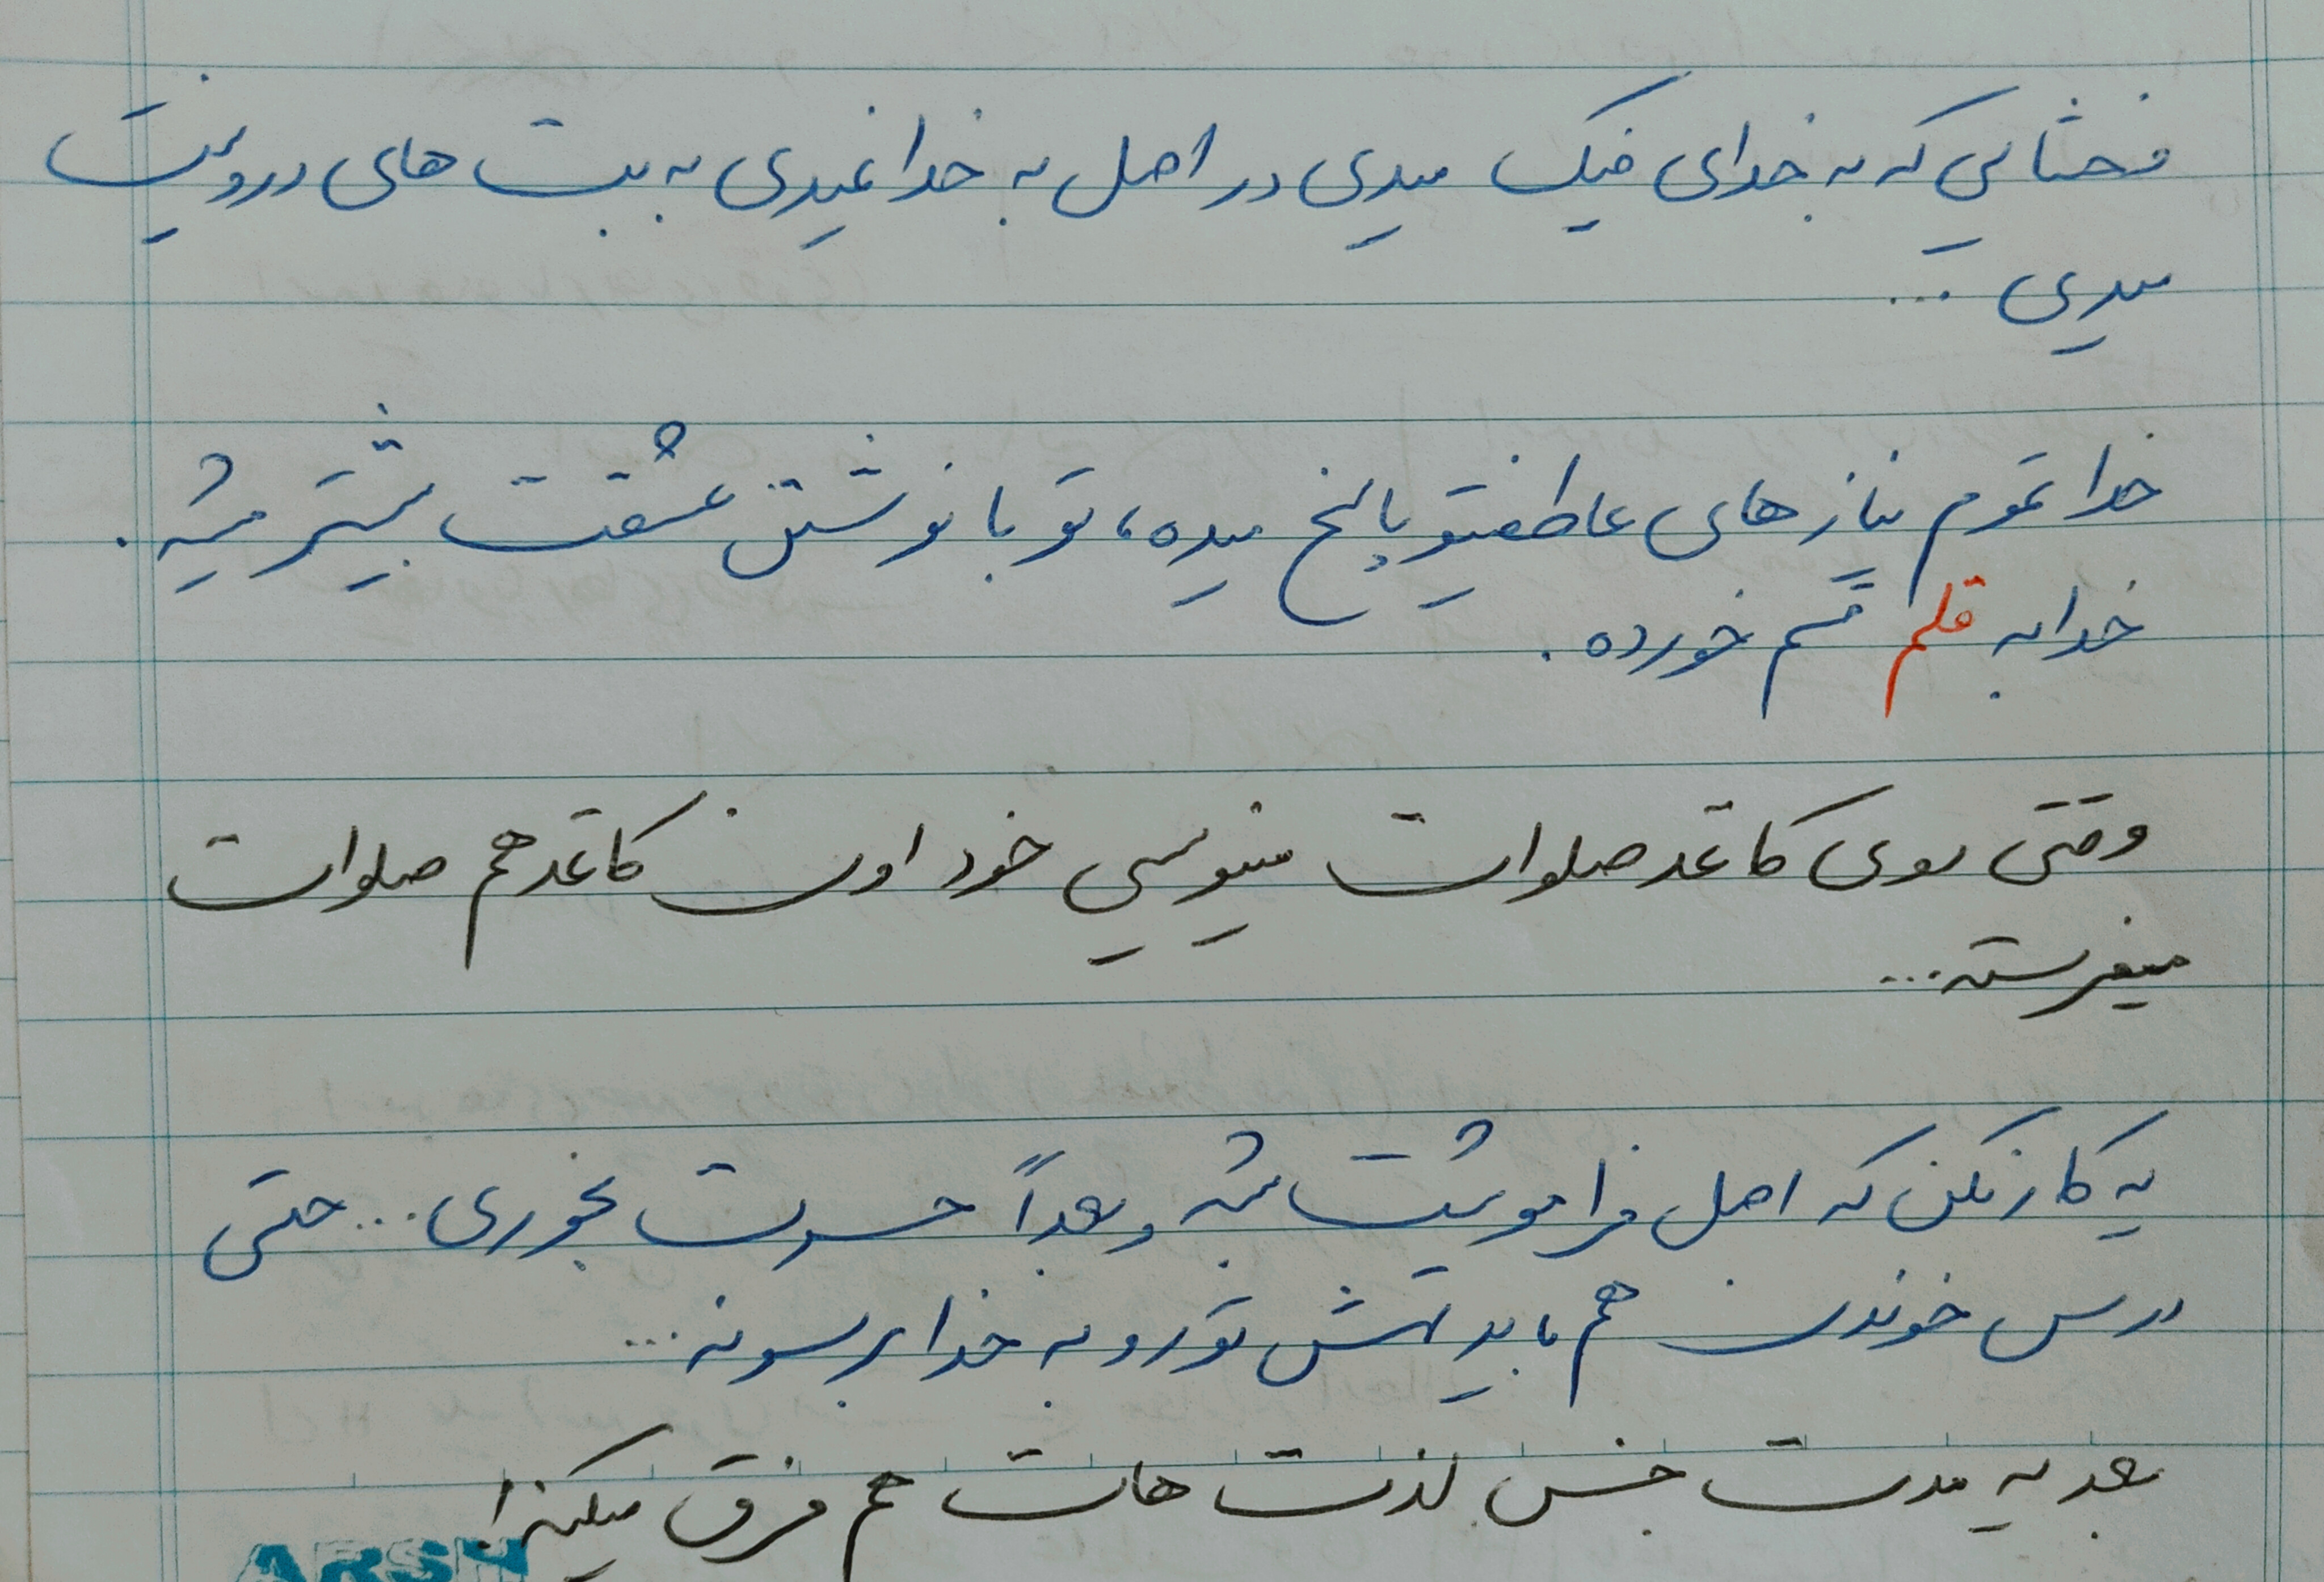 فحشایی که به خدای فیک میدی در اصل به خدا نمیدی به بت های درونیت
میدی ...
خدا تموم نیاز های عاطفیتو پاسخ میده، تو با نوشتن عشقت بیشتر میشه.
خدا به قلم قسم خورده.
وقتی روی کاغذ صلوات مینویسی خود اون کاغذ هم صلوات
میفرسته...
یه کار نکن که اصل فراموشت بشه و بعداً حسرت بخوری... حتی
درس خوندن هم باید تهش تو رو به خدا برسونه...
بعد یه مدت جنس لذت هات هم فرق میکنه!
ARSH